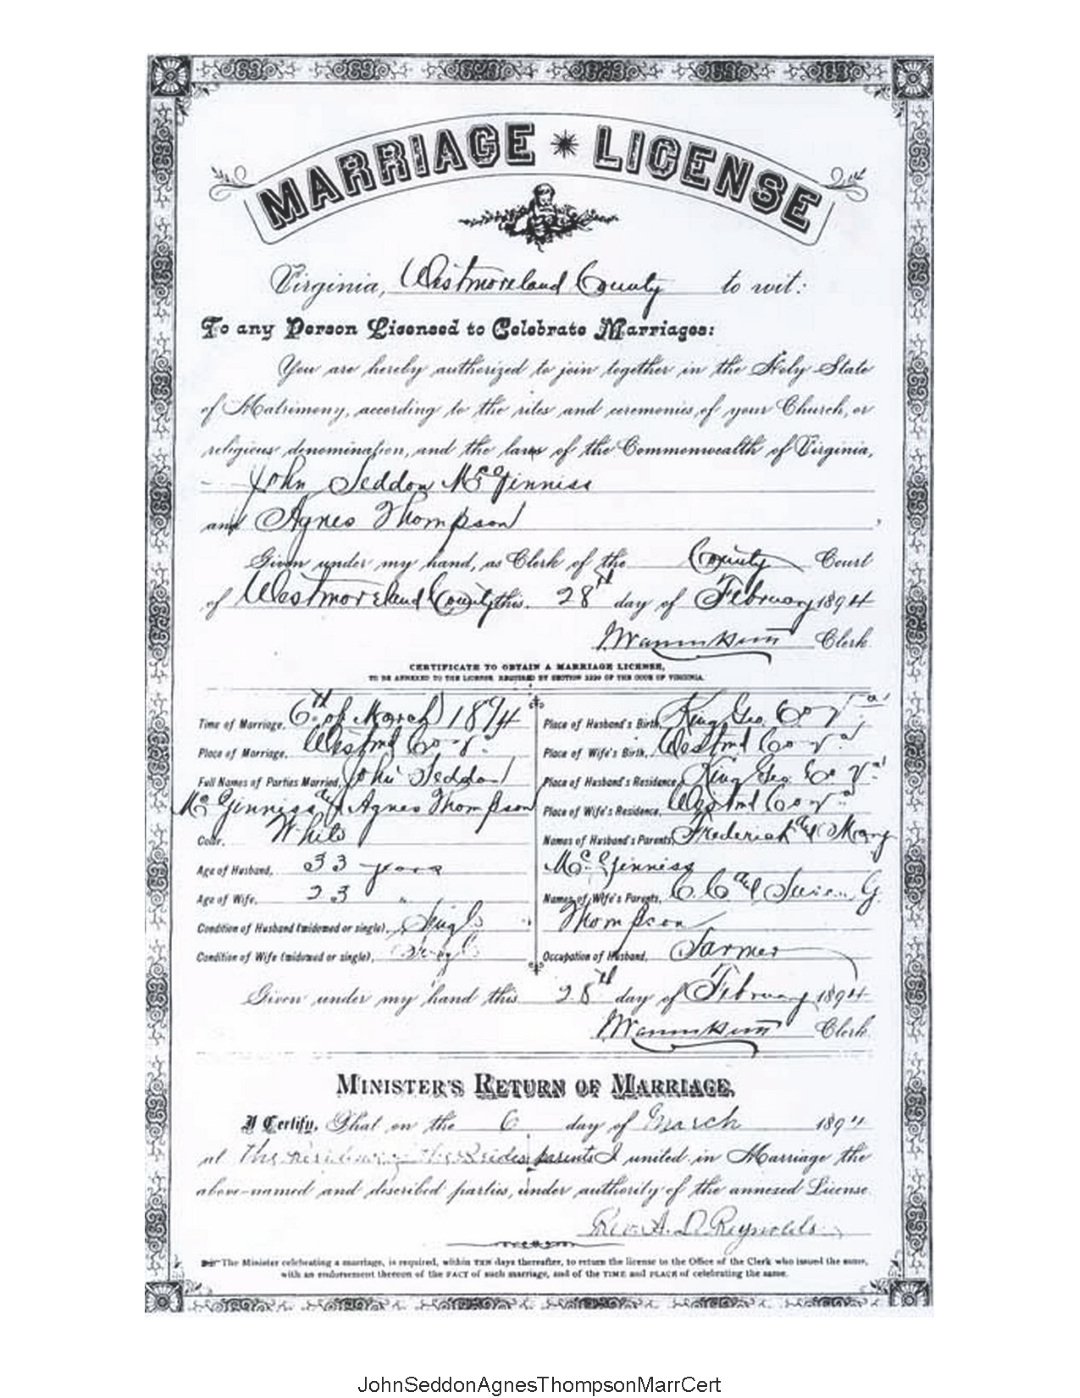 MARRIAGE * LICENSE
Virginia, Westmoreland County to wit:
To any Person Licensed to Celebrate Marriages:
You are hereby authorized to join together in the Holy State
of Matrimony, according to the rites and ceremonies, of your Church, or
religious denomination, and the laws of the Commonwealth of Virginia,
John Seddon McGinniss
and Agnes Thompson,
Given under my hand, as Clerk of the County Court
of Westmoreland County this 28th day of February 1894
Clerk.
CERTIFICATE TO OBTAIN A MARRIAGE LICENSE,
TO BE ANNEXED TO THE LICENSE, REQUIRED BY SECTION 2229 OF THE CODE OF VIRGINIA.
Time of Marriage, 6th of March 1894
Place of Marriage, Westmd Co Va
Full Names of Parties Married, John Seddon
McGinniss and Agnes Thompson
Color, White
Age of Husband, 33 years
Age of Wife, 23 "
Condition of Husband (widowed or single), Single
Condition of Wife (widowed or single), Single
Place of Husband's Birth, King Geo. Co Va
Place of Wife's Birth, Westmd Co Va
Place of Husband's Residence, King Geo. Co Va
Place of Wife's Residence, Westmd Co Va
Names of Husband's Parents, Frederick and Mary
McGinniss
Names of Wife's Parents, C. C. and Susie G.
Thompson
Occupation of Husband, Farmer
Given under my hand this 28th day of February 1894
Clerk.
MINISTER'S RETURN OF MARRIAGE.
I Certify, That on the 6 day of March 1894
at The residence the Brides parents I united in Marriage the
above-named and described parties, under authority of the annexed License.
Rev. A. D. Reynolds
The Minister celebrating a marriage, is required, within TEN days thereafter, to return the license to the Office of the Clerk who issued the same,
with an endorsement thereon of the FACT of such marriage, and of the TIME and PLACE of celebrating the same.
JohnSeddonAgnesThompsonMarrCert